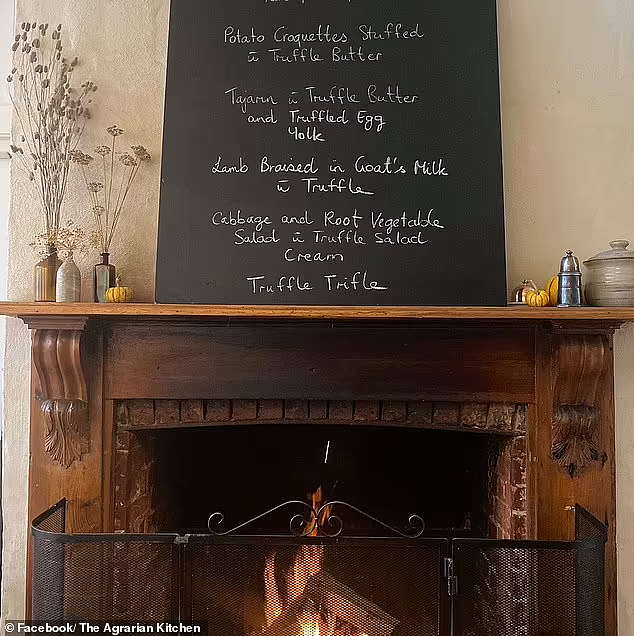 Potato Croquettes Stuffed
w̄ Truffle Butter
Tajarin w̄ Truffle Butter
and Truffled Egg
Yolk
Lamb Braised in Goat's Milk
w̄ Truffle
Cabbage and Root Vegetable
Salad w̄ Truffle Salad
Cream
Truffle Trifle
© Facebook/ The Agrarian Kitchen